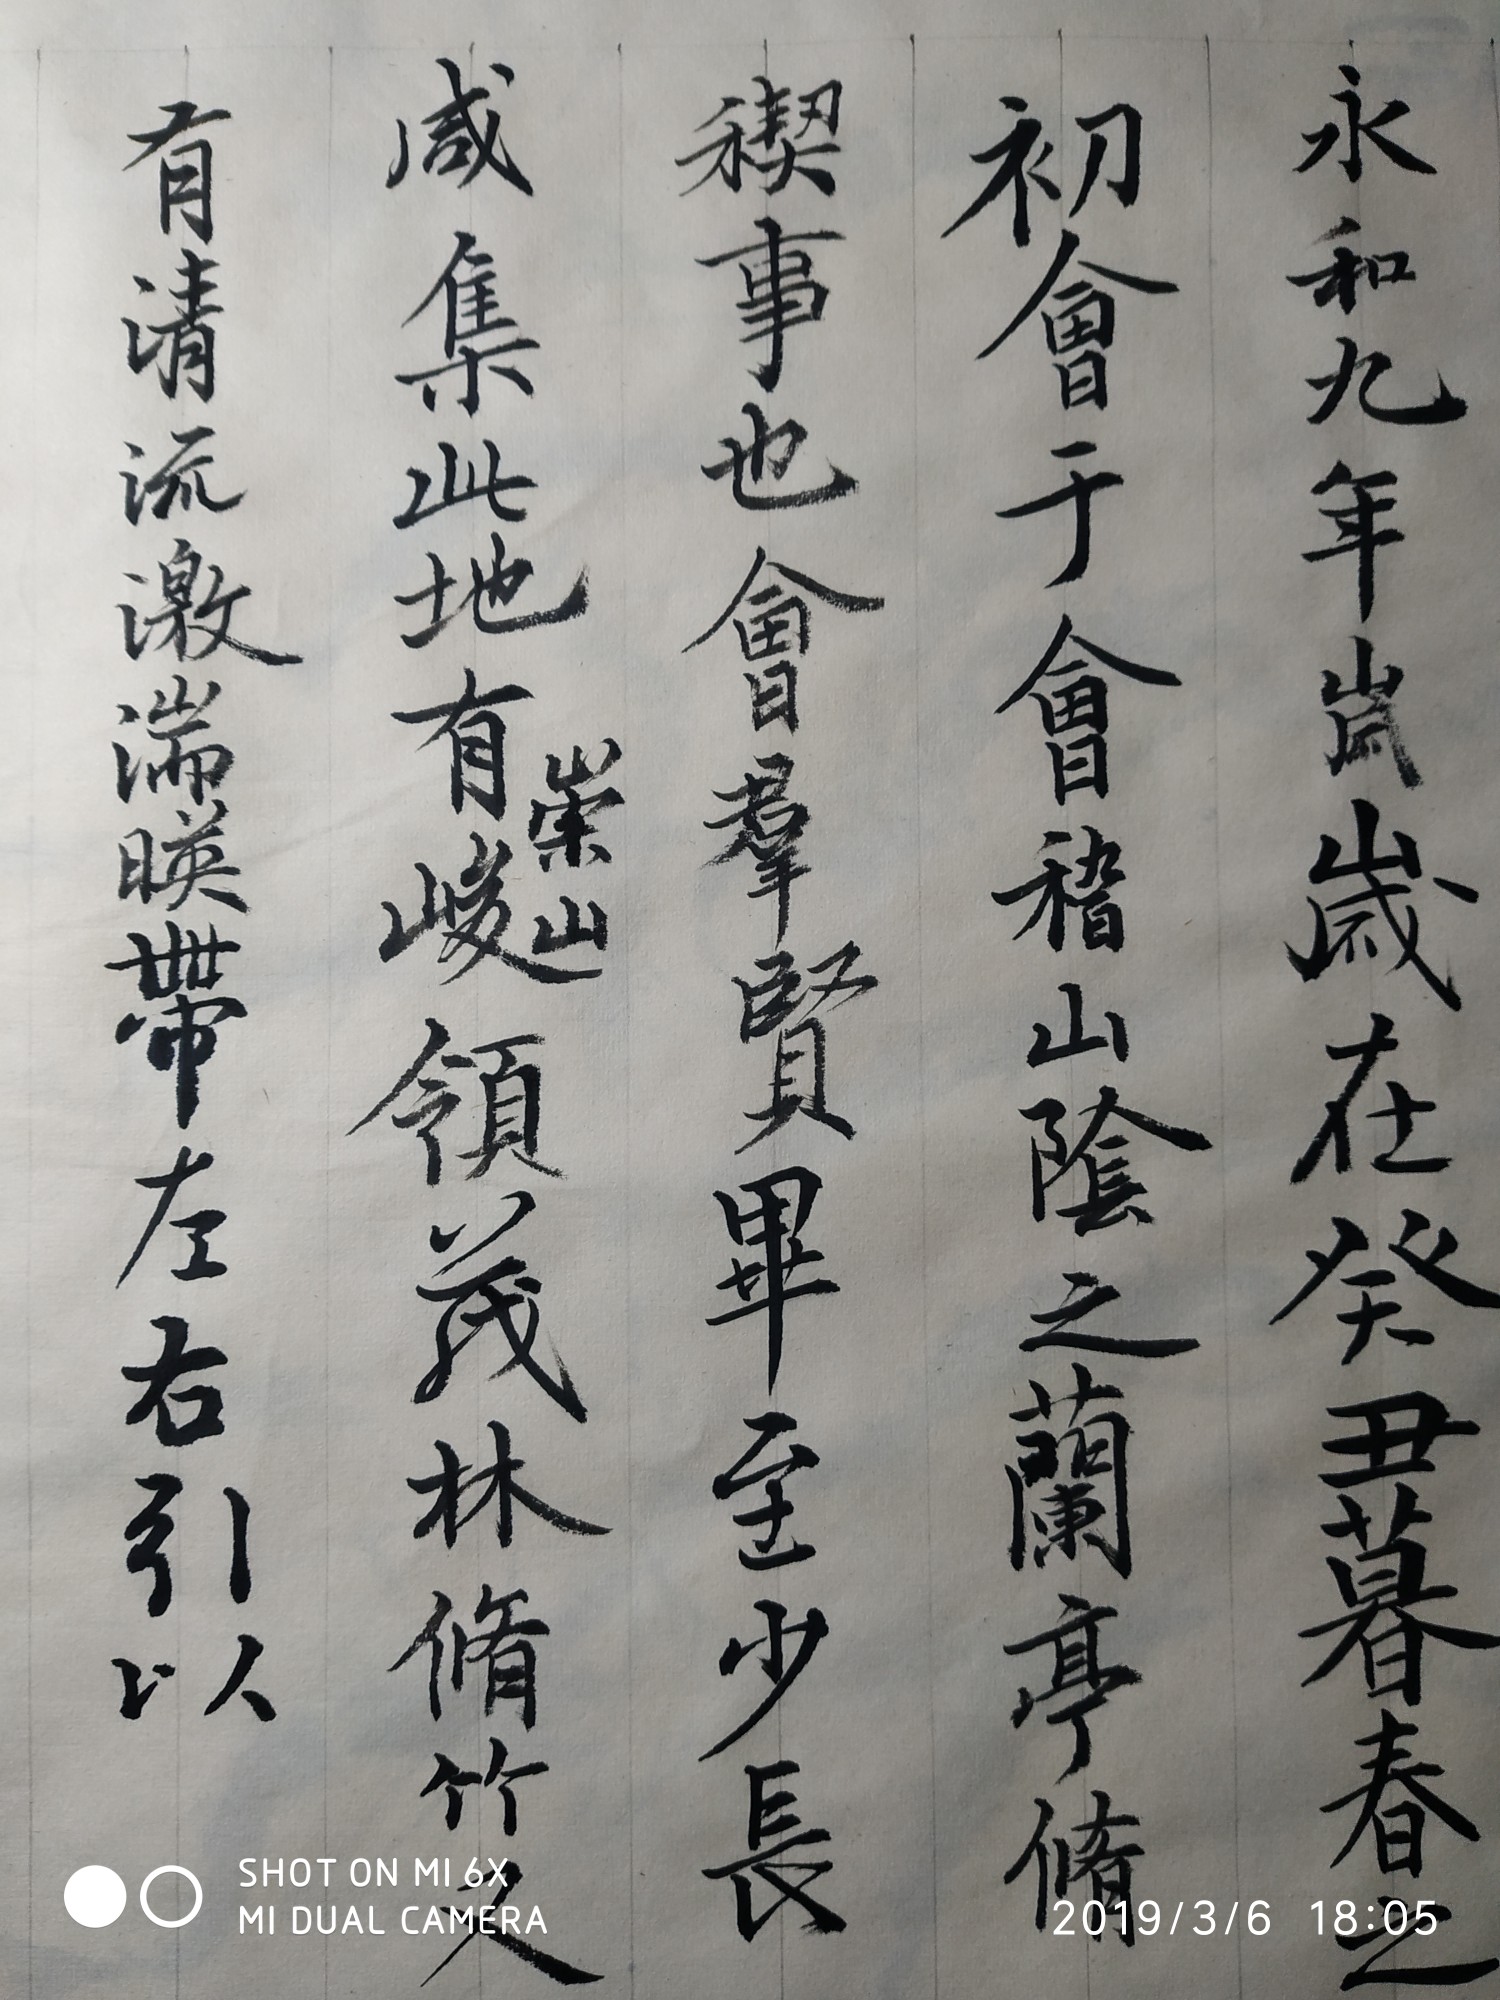 永和九年歲歲在癸丑暮春之
初會于會稽山陰之蘭亭脩
稧事也會羣賢畢至少長
咸集此地有崇山峻領茂林脩竹又
有清流激湍暎帶左右引以
SHOT ON MI 6X
MI DUAL CAMERA
2019/3/6 18:05